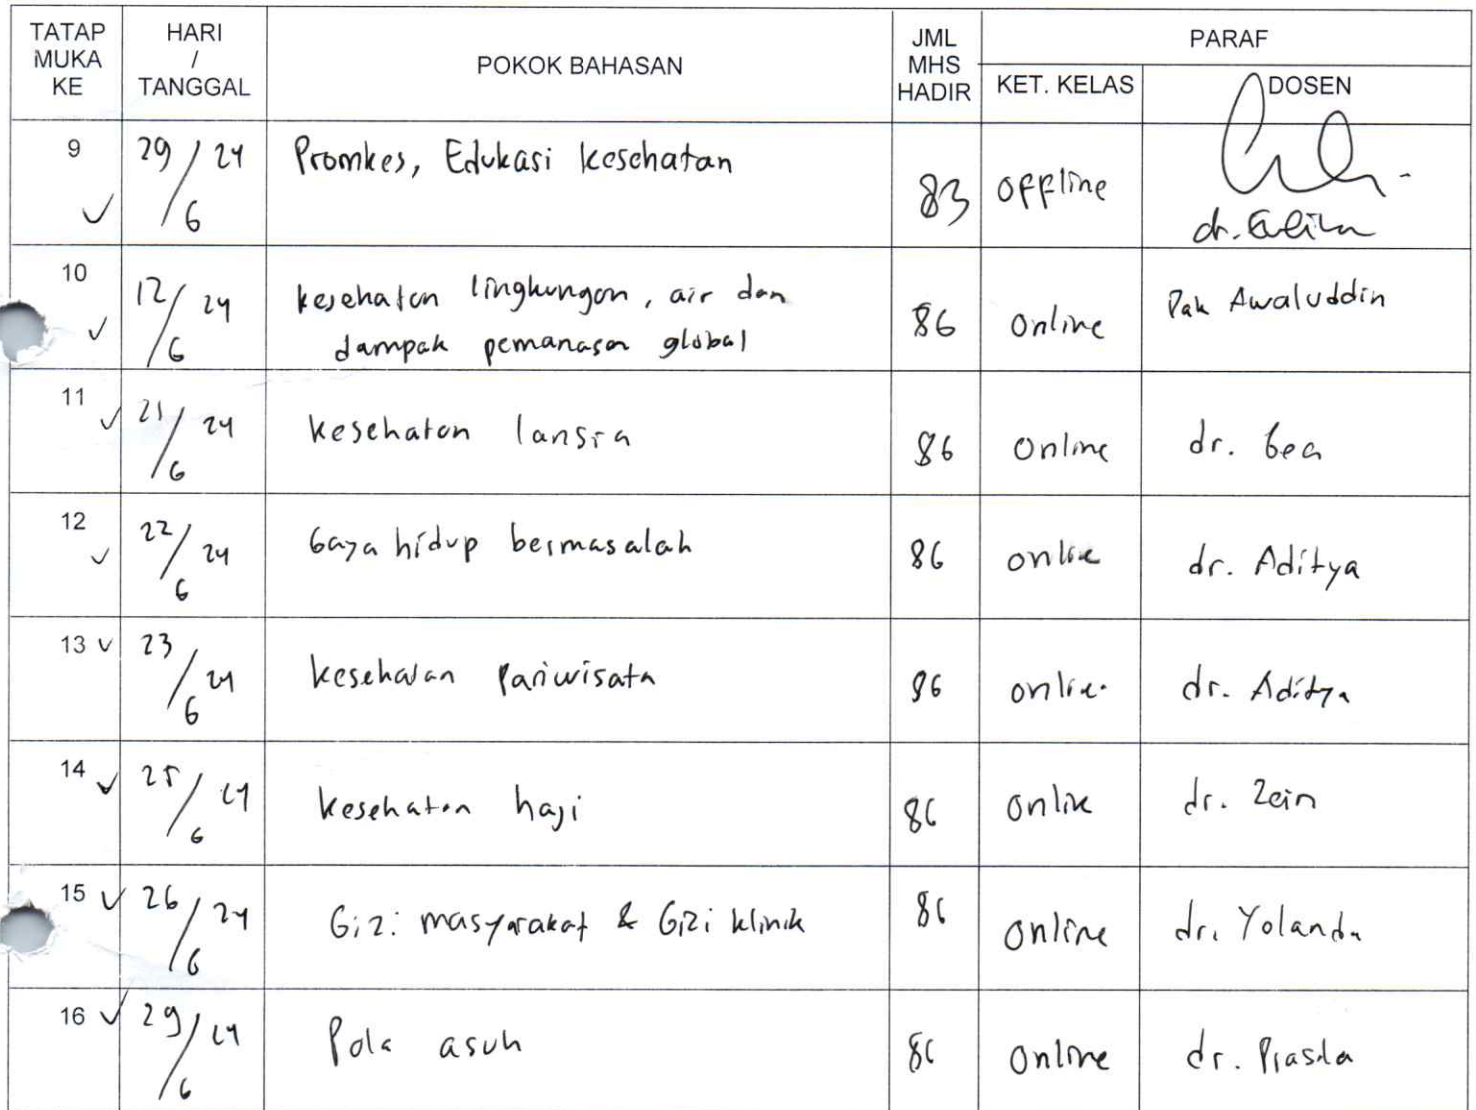 TATAP MUKA KE
HARI / TANGGAL
POKOK BAHASAN
JML MHS HADIR
PARAF
KET. KELAS
DOSEN
9
29/6 24
Promkes, Edukasi kesehatan
83
offline
dr.
10
12/6 24
kesehatan lingkungan, air dan
dampak pemanasan global
86
online
Pak Awaluddin
11
21/6 24
kesehatan lansia
86
online
dr. Bea
12
22/6 24
Gaya hidup bermasalah
86
online
dr. Aditya
13
23/6 24
kesehatan pariwisata
86
online
dr. Aditya
14
25/6 24
kesehatan haji
86
online
dr. Zein
15
26/6 24
Gizi masyarakat & Gizi klinik
86
online
dr. Yolanda
16
29/6 24
Pola asuh
86
online
dr.